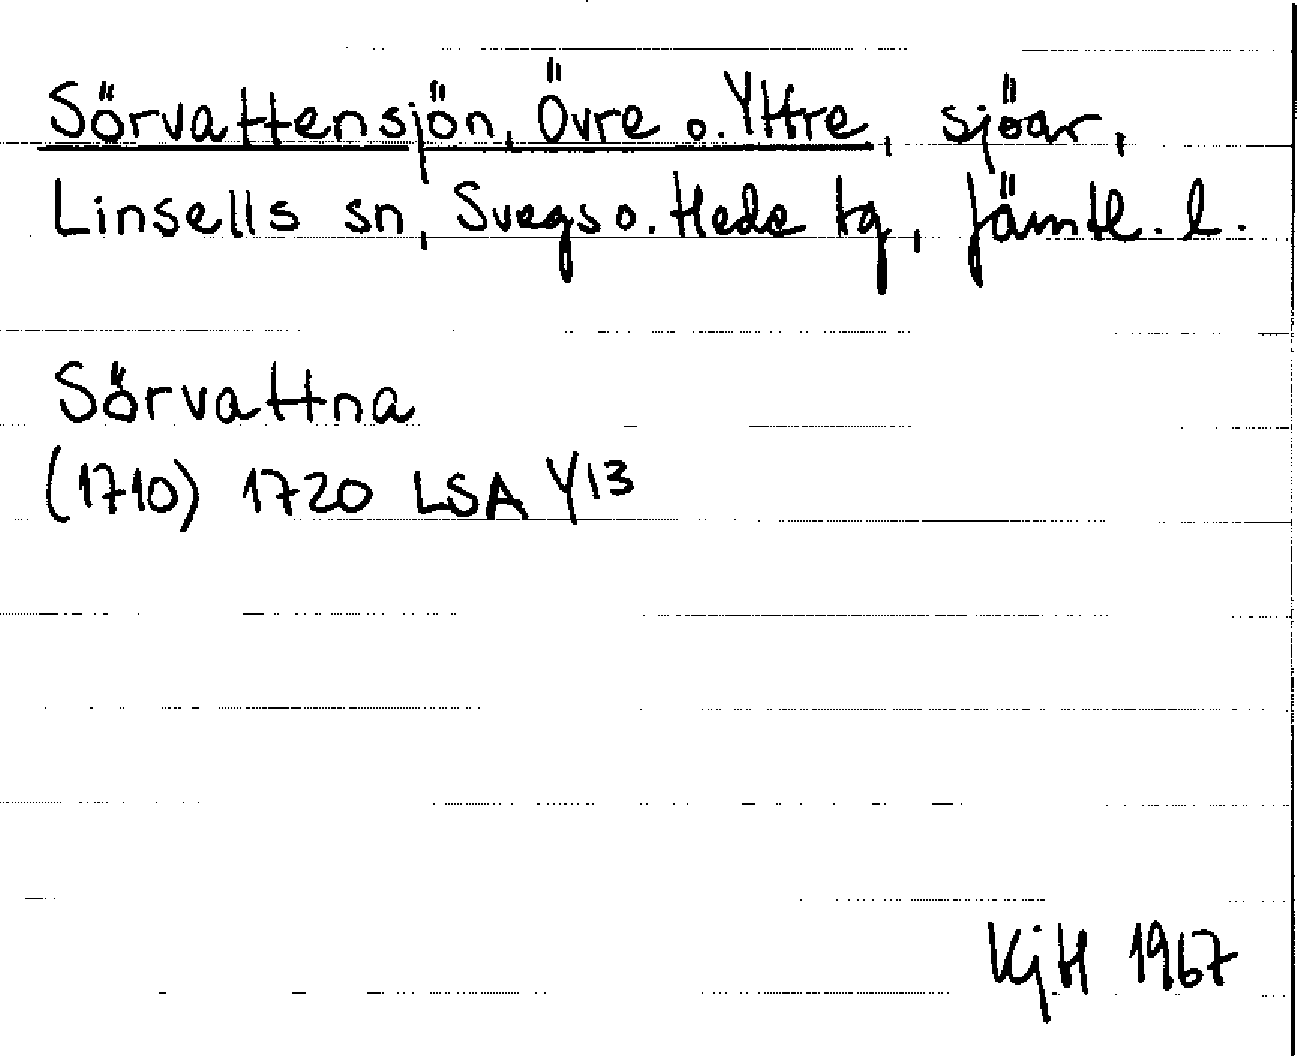 Sörvattensjön, Övre o. Yttre, sjöar,
Linsells sn, Svegs o. Hede tg, Jämtl. l.
Sörvattna
(1710) 1720 LSA Y13
KjH 1967